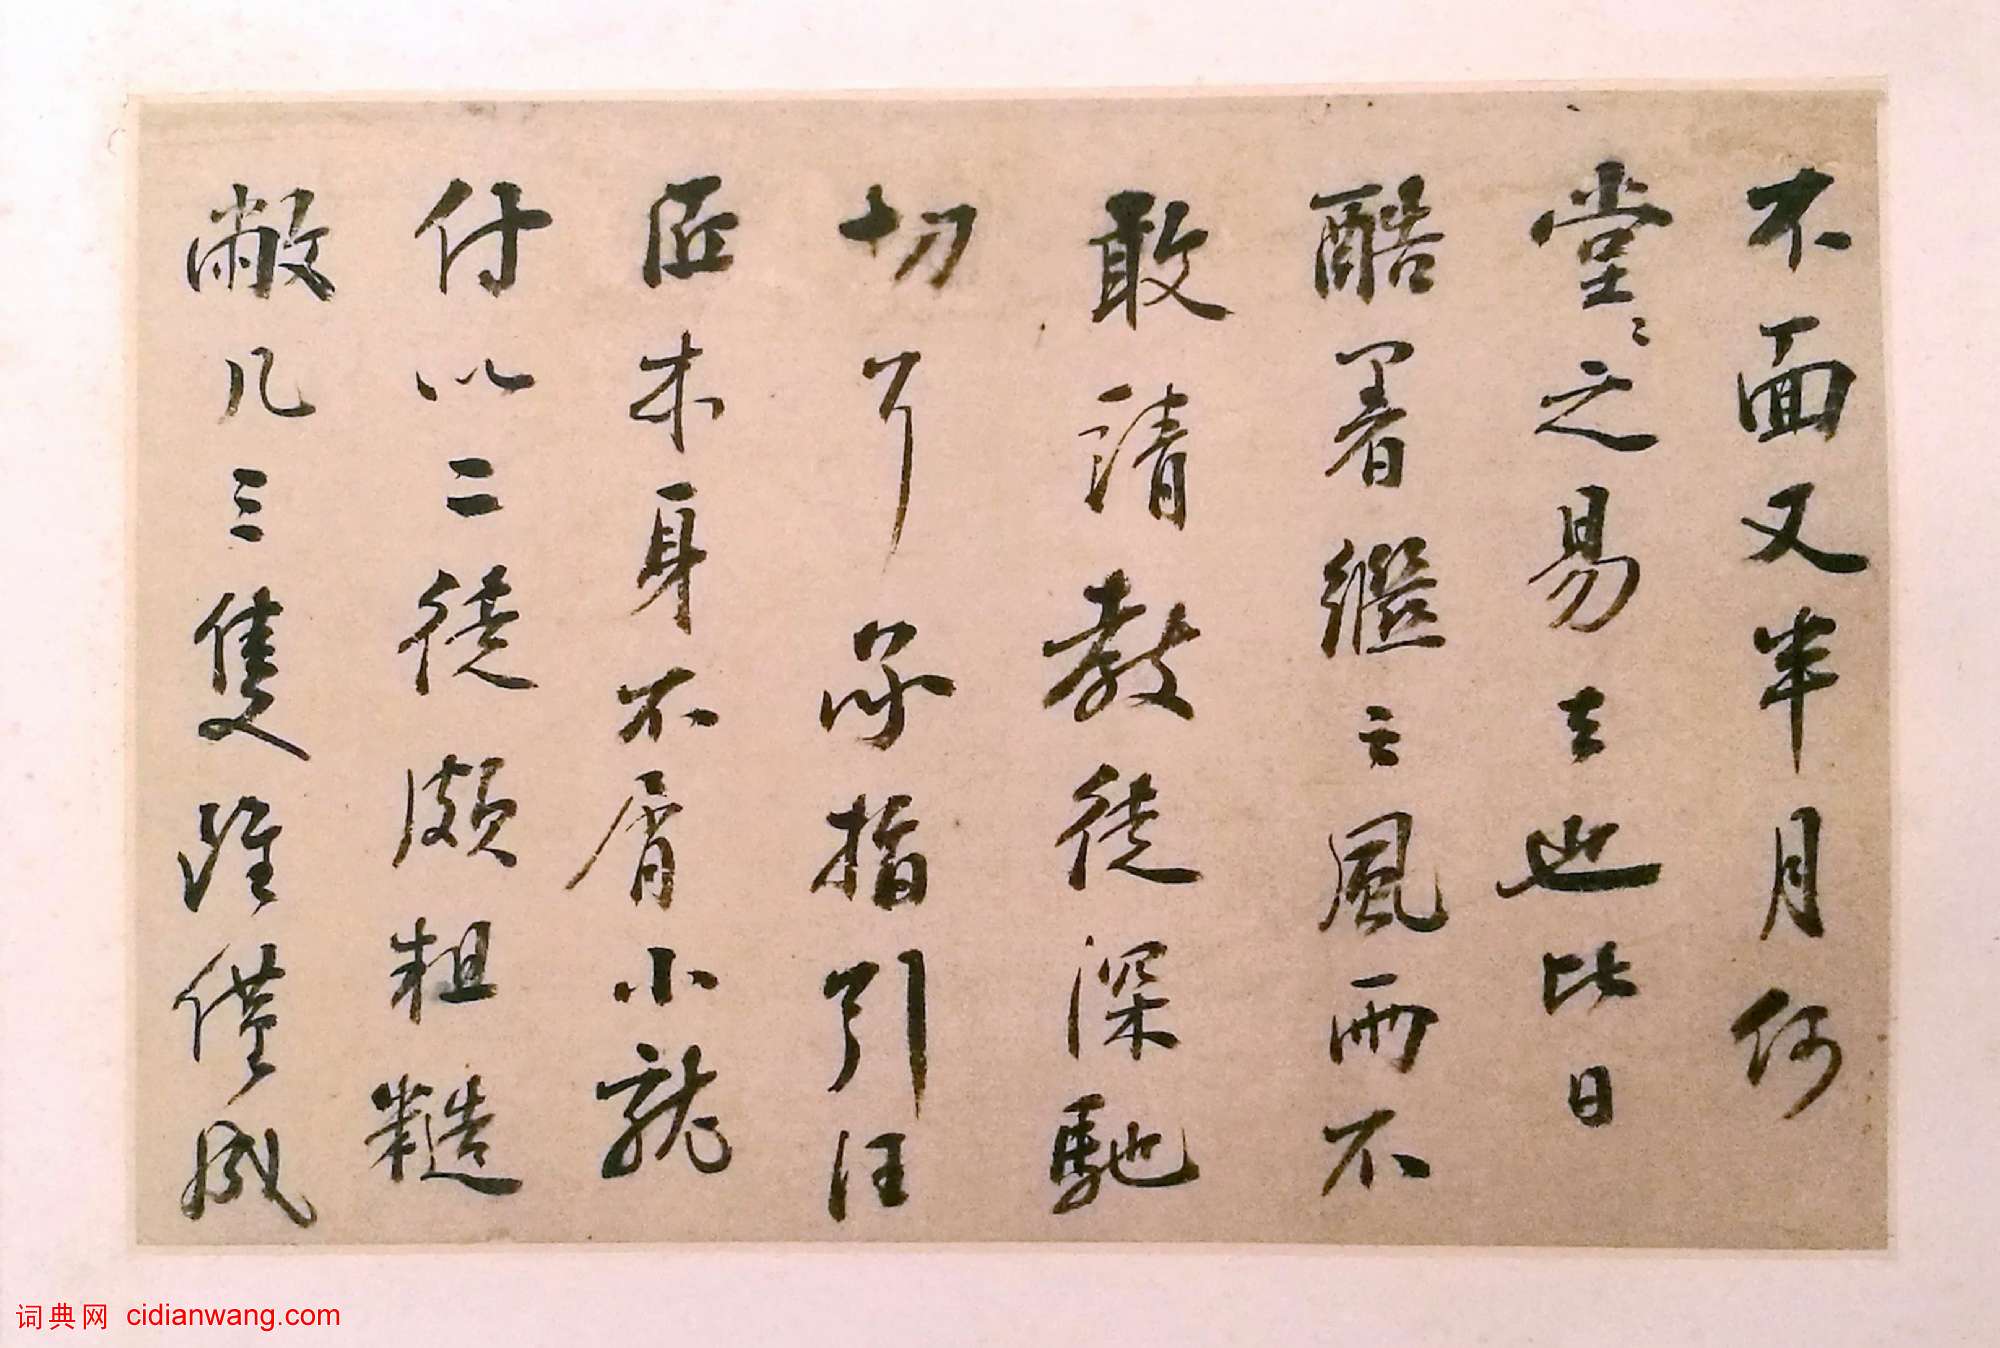 不面又半月何
堂〻之易去也比日
酷暑繼之風雨不
敢請教徒深馳
切了 承指引汪
匠本身不屑小就
付以二徒頗粗糙
敝几三隻雖僅成
词典网 cidianwang.com